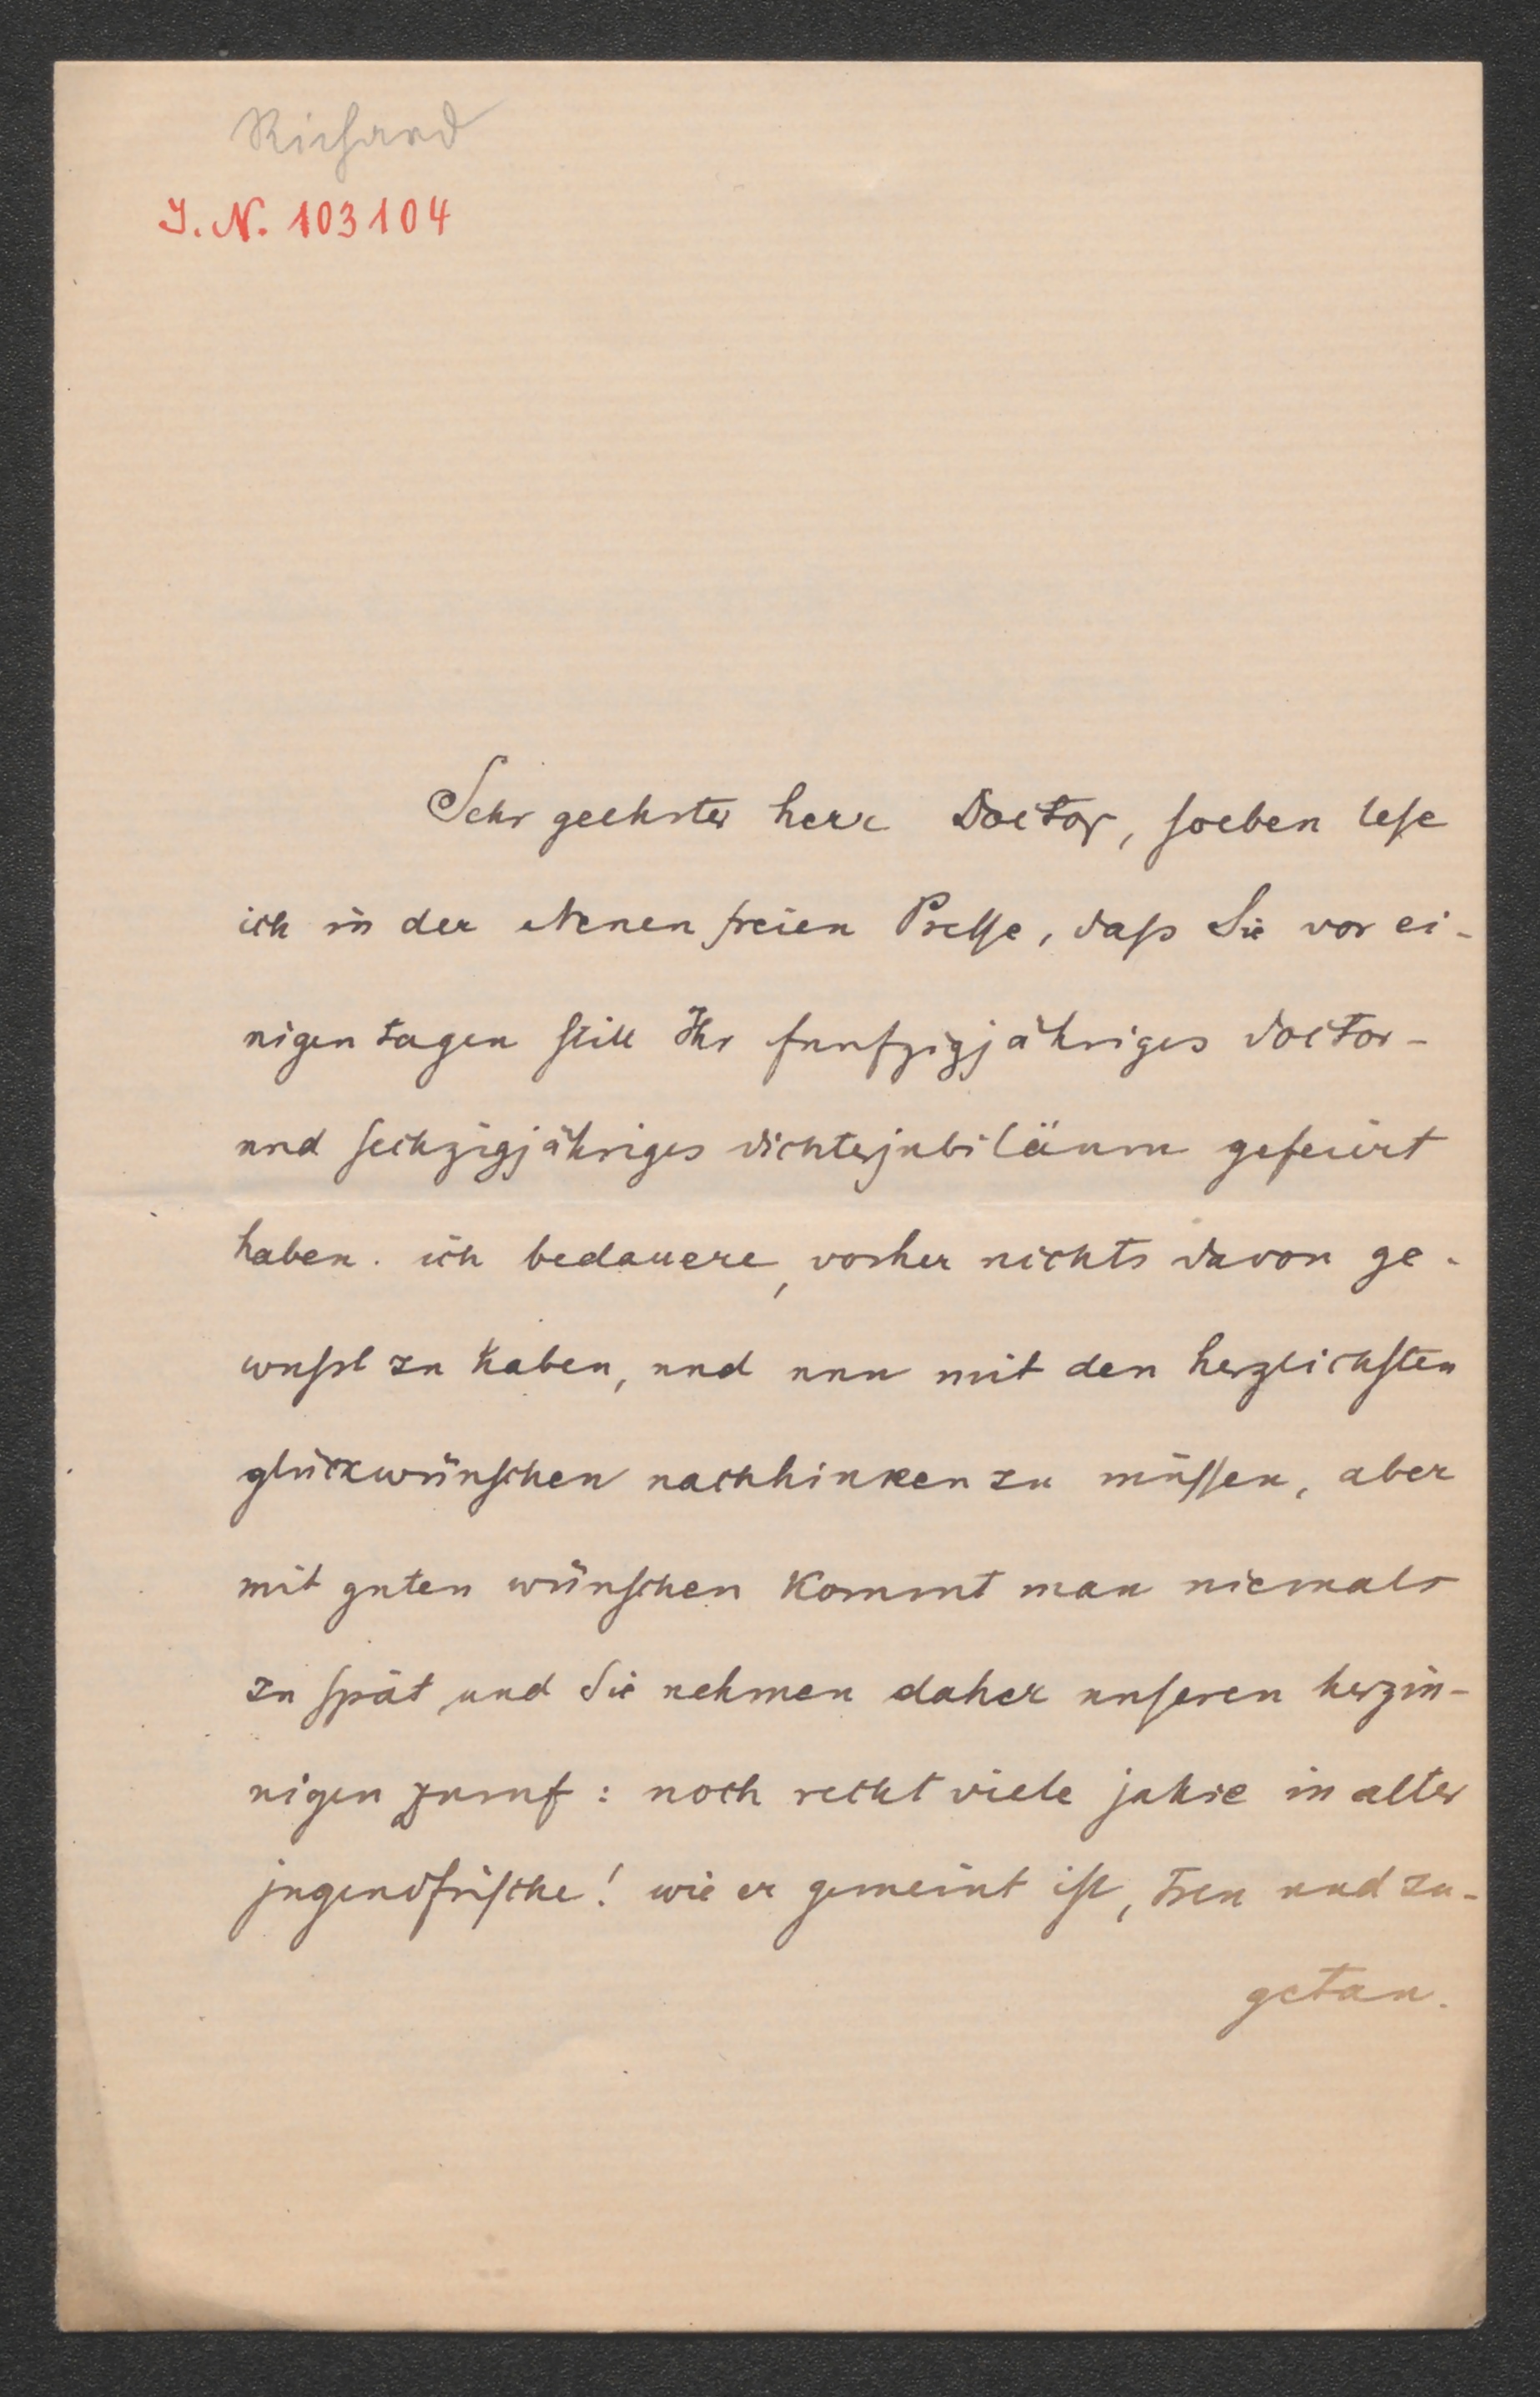 Richard
I. N. 103104
Sehr geehrter herr Doctor, soeben lese
ich in der Neuen freien Presse, daß Sie vor ei-
nigen tagen still Ihr funfzigjähriges doctor-
und sechzigjähriges dichterjubiläum gefeiert
haben. ich bedauere, vorher nichts davon ge-
wußt zu haben, und nun mit den herzlichsten
glückwünschen nachhinken zu müssen, aber
mit guten wünschen kommt man niemals
zu spät und Sie nehmen daher unseren herzin-
nigen zuruf: noch recht viele jahre in alter
jugendfrische! wie er gemeint ist, treu und zu-
getan.